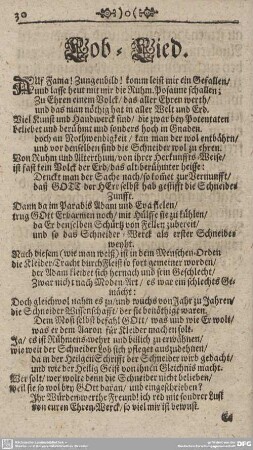 30
Lob-Lied.
AUf Fama! Zungenbild! komm leist mir ein Gefallen/
und lasse heut mit mir die Ruhm-Posaune schallen;
Zu Ehren einem Volck/ das aller Ehren werth/
und das man nöthig hat in aller Welt und Erd.
Viel Kunst und Handwerck sind/ die zwar bey Potentaten
beliebet und berühmt und sonders hoch in Gnaden.
doch an Nothwendigkeit/ kan man der wol entbährn/
und vor denselben sind die Schneider wol zu ehren.
Von Ruhm und Alterthum/ von ihrer Herkunffts-Weise/
ist fast kein Volck der Erd/ das alt berühmter heisse:
Denckt man der Sache nach/ so kostet zur Vernunfft/
daß GOTT der HErr selbst hab gestifft die Schneider
Zunfft.
Dann da im Paradis Adam und Eva
trug GOtt Erbarmen noch/ mit Hülffe sie zu kühlen/
da Er denselben Schürtz von Fellen zubereit/
und so das Schneider-Werck als erster Schneider
weyht.
Nach diesem (wie man weiß) ist in dem Menschen-Orden
die Kleider-Tracht durch Fleiß je fort gemeiner worden/
der Adam kleidet sich hernach und sein Geschlecht/
Zwar nicht nach Moden Art/ es war ein schlechtes Ge-
mächt:
Doch gleichwol nahm es zu/ und wuchs von Jahr zu Jahren/
die Schneider Wissenschafft/ der sie benöthigt waren.
Dem Mose selbst befahl GOtt/ was und wie Er wolt/
was er dem Aaron für Kleider machen solt.
Ja/ es ist Rühmens-wehrt und billich zu erwähnen/
wie weit der Schneider Lob sich pfleget auszudehnen/
da in der Heiligen Schrifft der Schneider wird gedacht/
und wie der Heilig Geist von ihnen Gleichnis macht.
Wer solt/ wer wolte denn die Schneider nicht belieben/
weil sie so wol bey GOtt daran/ und eingeschrieben?
Ihr Würdenwerthe Freund! ich red mit sonder Lust
von euren Ehren-Werck/ so viel mir ist bewust.